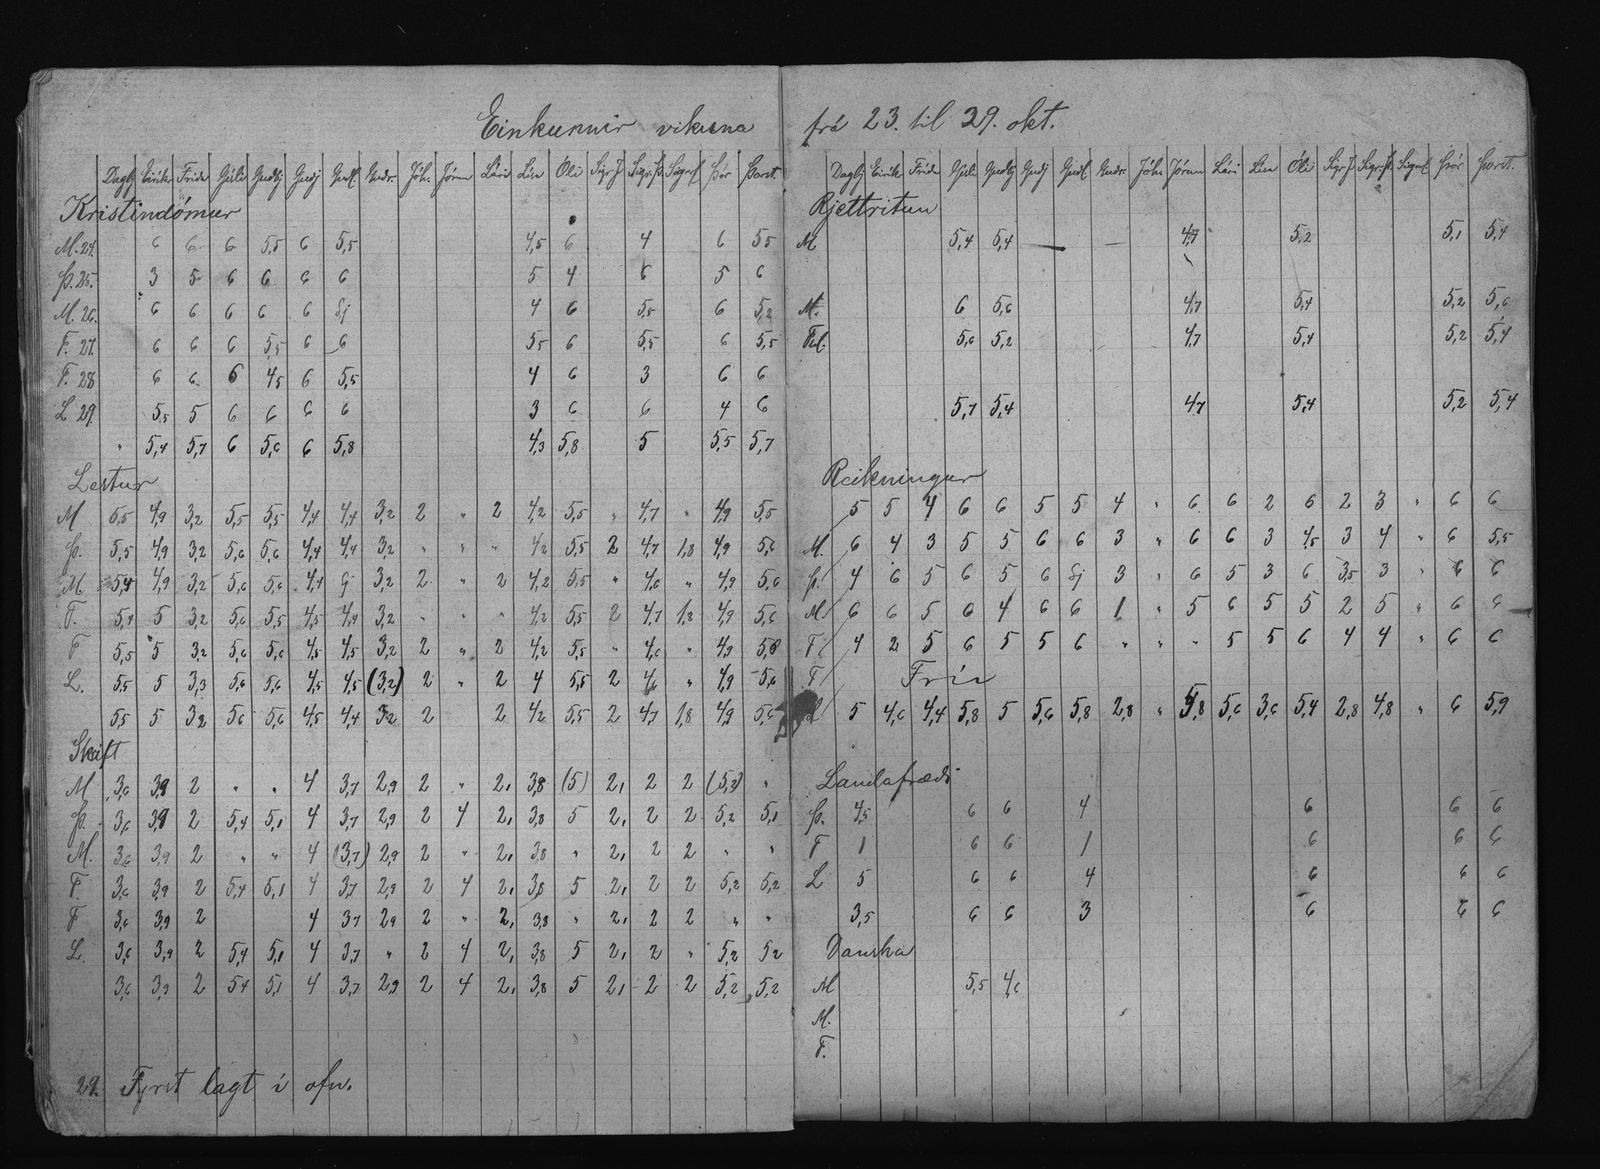 Einkunnir vikuna
Dagbj Eirík Fríða Júlí Guðbj Guðj Guðl Guðr Jóh. Jórun Lári Lín Óli Sigr J Sigr. Þ Sigrf Þór Þorst.
Kristindómur
M. 24. 6 6 6 5,5 6 5,5 4,5 6 4 6 5,5
Þ. 25. 3 5 6 6 6 6 5 4 6 5 6
M. 26. 6 6 6 6 6 Sj 4 6 5,5 6 5,2
F. 27. 6 6 6 5,5 6 6 5,5 6 5,5 6 5,5
F. 28 6 6 6 4,5 6 5,5 4 6 3 6 6
L 29. 5,5 5 6 6 6 6 3 6 6 4 6
" 5,4 5,7 6 5,6 6 5,8 4,3 5,8 5 5,5 5,7
Lestur
M 5,5 4,9 3,2 5,5 5,5 4,4 4,4 3,2 2 " 2 4,2 5,5 " 4,7 " 4,9 5,5
Þ. 5,5 4,9 3,2 5,6 5,6 4,4 4,4 3,2 " " " 4,2 5,5 2 4,7 1,8 4,9 5,6
M 5,4 4,9 3,2 5,6 5,6 4,4 3,2 2 " 2 4,2 5,5 " 4,6 " 4,9 5,6
F. 5,4 5 3,2 5,6 5,5 4,5 4,4 3,2 " " " 4,2 5,5 2 4,7 1,8 4,9 5,6
F 5,5 5 3,2 5,6 5,6 4,5 4,5 3,2 2 " 2 4,2 5,5 " 4,6 " 4,9 5,8
L. 5,5 5 3,3 5,6 5,6 4,5 4,5 (3,2) 2 " 2 4 5,5 2 4,6 " 4,9 5,6
5,5 5 3,2 5,6 5,6 4,5 4,4 3,2 2 2 4,2 5,5 2 4,7 1,8 4,9 5,6
Skrift
M 3,6 3,9 2 " " 4 3,7 2,9 2 " 2,1 3,8 (5) 2,1 2 2 (5,2) "
Þ. 3,6 3,9 2 5,4 5,1 4 3,7 2,9 2 4 2,1 3,8 5 2,1 2 2 5,2 5,1
M. 3,6 3,9 2 " " 4 (3,7) 2,9 2 " 2,1 3,8 " 2,1 2 2 " "
F. 3,6 3,9 2 5,4 5,1 4 3,7 2,9 2 4 2,1 3,8 5 2,1 2 2 5,2 5,2
F 3,6 3,9 2 4 3,7 2,9 2 " 2,1 3,8 " 2,1 2 2 " "
L. 3,6 3,9 2 5,4 5,1 4 3,7 " 2 4 2,1 3,8 5 2,1 2 " 5,2 5,2
3,6 3,9 2 5,4 5,1 4 3,7 2,9 2 4 2,1 3,8 5 2,1 2 2 5,2 5,2
29. Fyrst lagt í ofn.
frá 23. til 29. okt.
Dagbj Eirík Fríða Júlí Guðbj Guðj Guðl Guðr Jóh Jórun Lári Lín Óli Sigr J Sigr. Þ. Sigrf Þór Þorst.
Rjettritun
M 5,4 5,4 — — 4,7 5,2 5,1 5,4
M. 6 5,6 4,7 5,4 5,2 5,6
5,6 5,2 4,7 5,4 5,2 5,4
5,7 5,4 4,7 5,4 5,2 5,4
Reikningur
5 5 4 6 6 5 5 4 " 6 6 2 6 2 3 " 6 6
M. 6 4 3 5 5 6 6 3 " 6 6 3 4,5 3 4 " 6 5,5
Þ. 4 6 5 6 5 6 Sj 3 " 6 5 3 6 3,5 3 " 6 6
M 6 6 5 6 4 6 6 1 " 5 6 5 5 2 5 " 6 6
F. 4 2 5 6 5 5 6 " " " 5 5 6 4 4 " 6 6
F Frí
L 5 4,6 4,4 5,8 5 5,6 5,8 2,8 " 5,8 5,6 3,6 5,4 2,8 4,8 " 6 5,9
Landafræði
Þ. 4,5 6 6 4 6 6 6
F 1 6 6 1 6 6 6
L 5 6 6 4 6 6 6
3,5 6 6 3 6 6 6
Danska
M 5,5 4,6
M.
F.